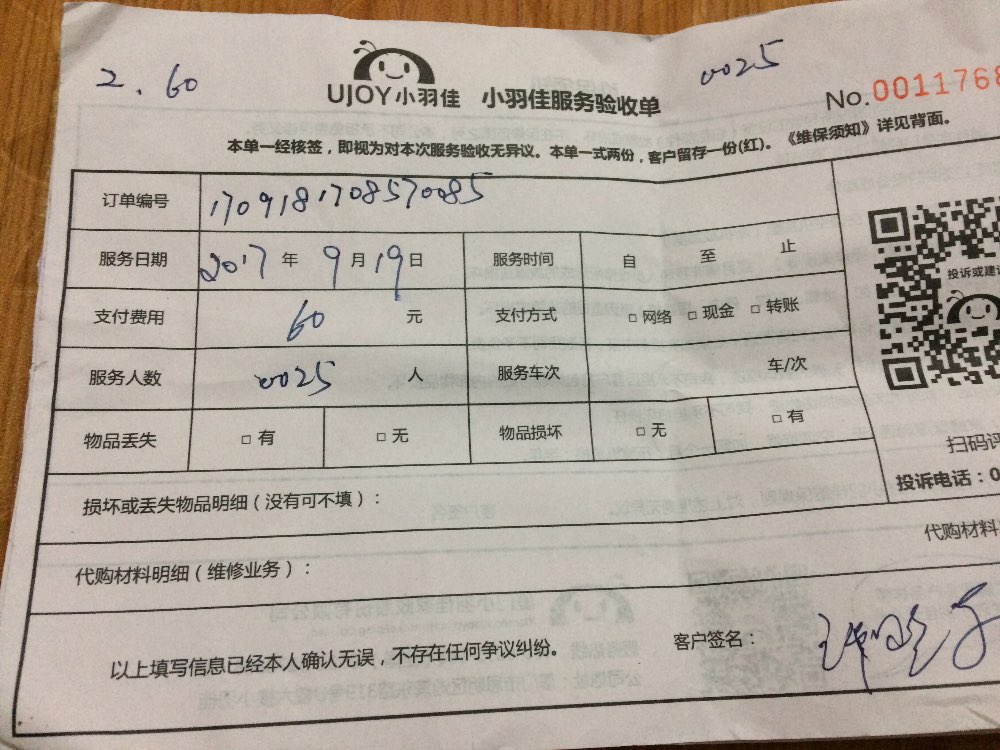 2.60
0025
UJOY小羽佳 小羽佳服务验收单
No.0011768
本单一经核签，即视为对本次服务验收无异议。本单一式两份，客户留存一份(红)。《维保须知》详见背面。
订单编号 1709181708570085
服务日期 2017 年 9 月 19 日 服务时间 自 至 止
投诉或建议
支付费用 60 元 支付方式 □ 网络 □ 现金 □ 转账
服务人数 0025 人 服务车次 车/次
物品丢失 □ 有 □ 无 物品损坏 □ 无 □ 有
扫码评
投诉电话：0
损坏或丢失物品明细（没有可不填）：
代购材料
代购材料明细（维修业务）：
以上填写信息已经本人确认无误，不存在任何争议纠纷。 客户签名：